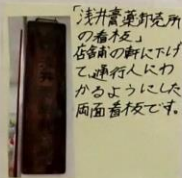 「浅井膏薬卸売所
の看板」
店舗の軒に下げ
て通行人にわ
かるようにした
両面看板です。